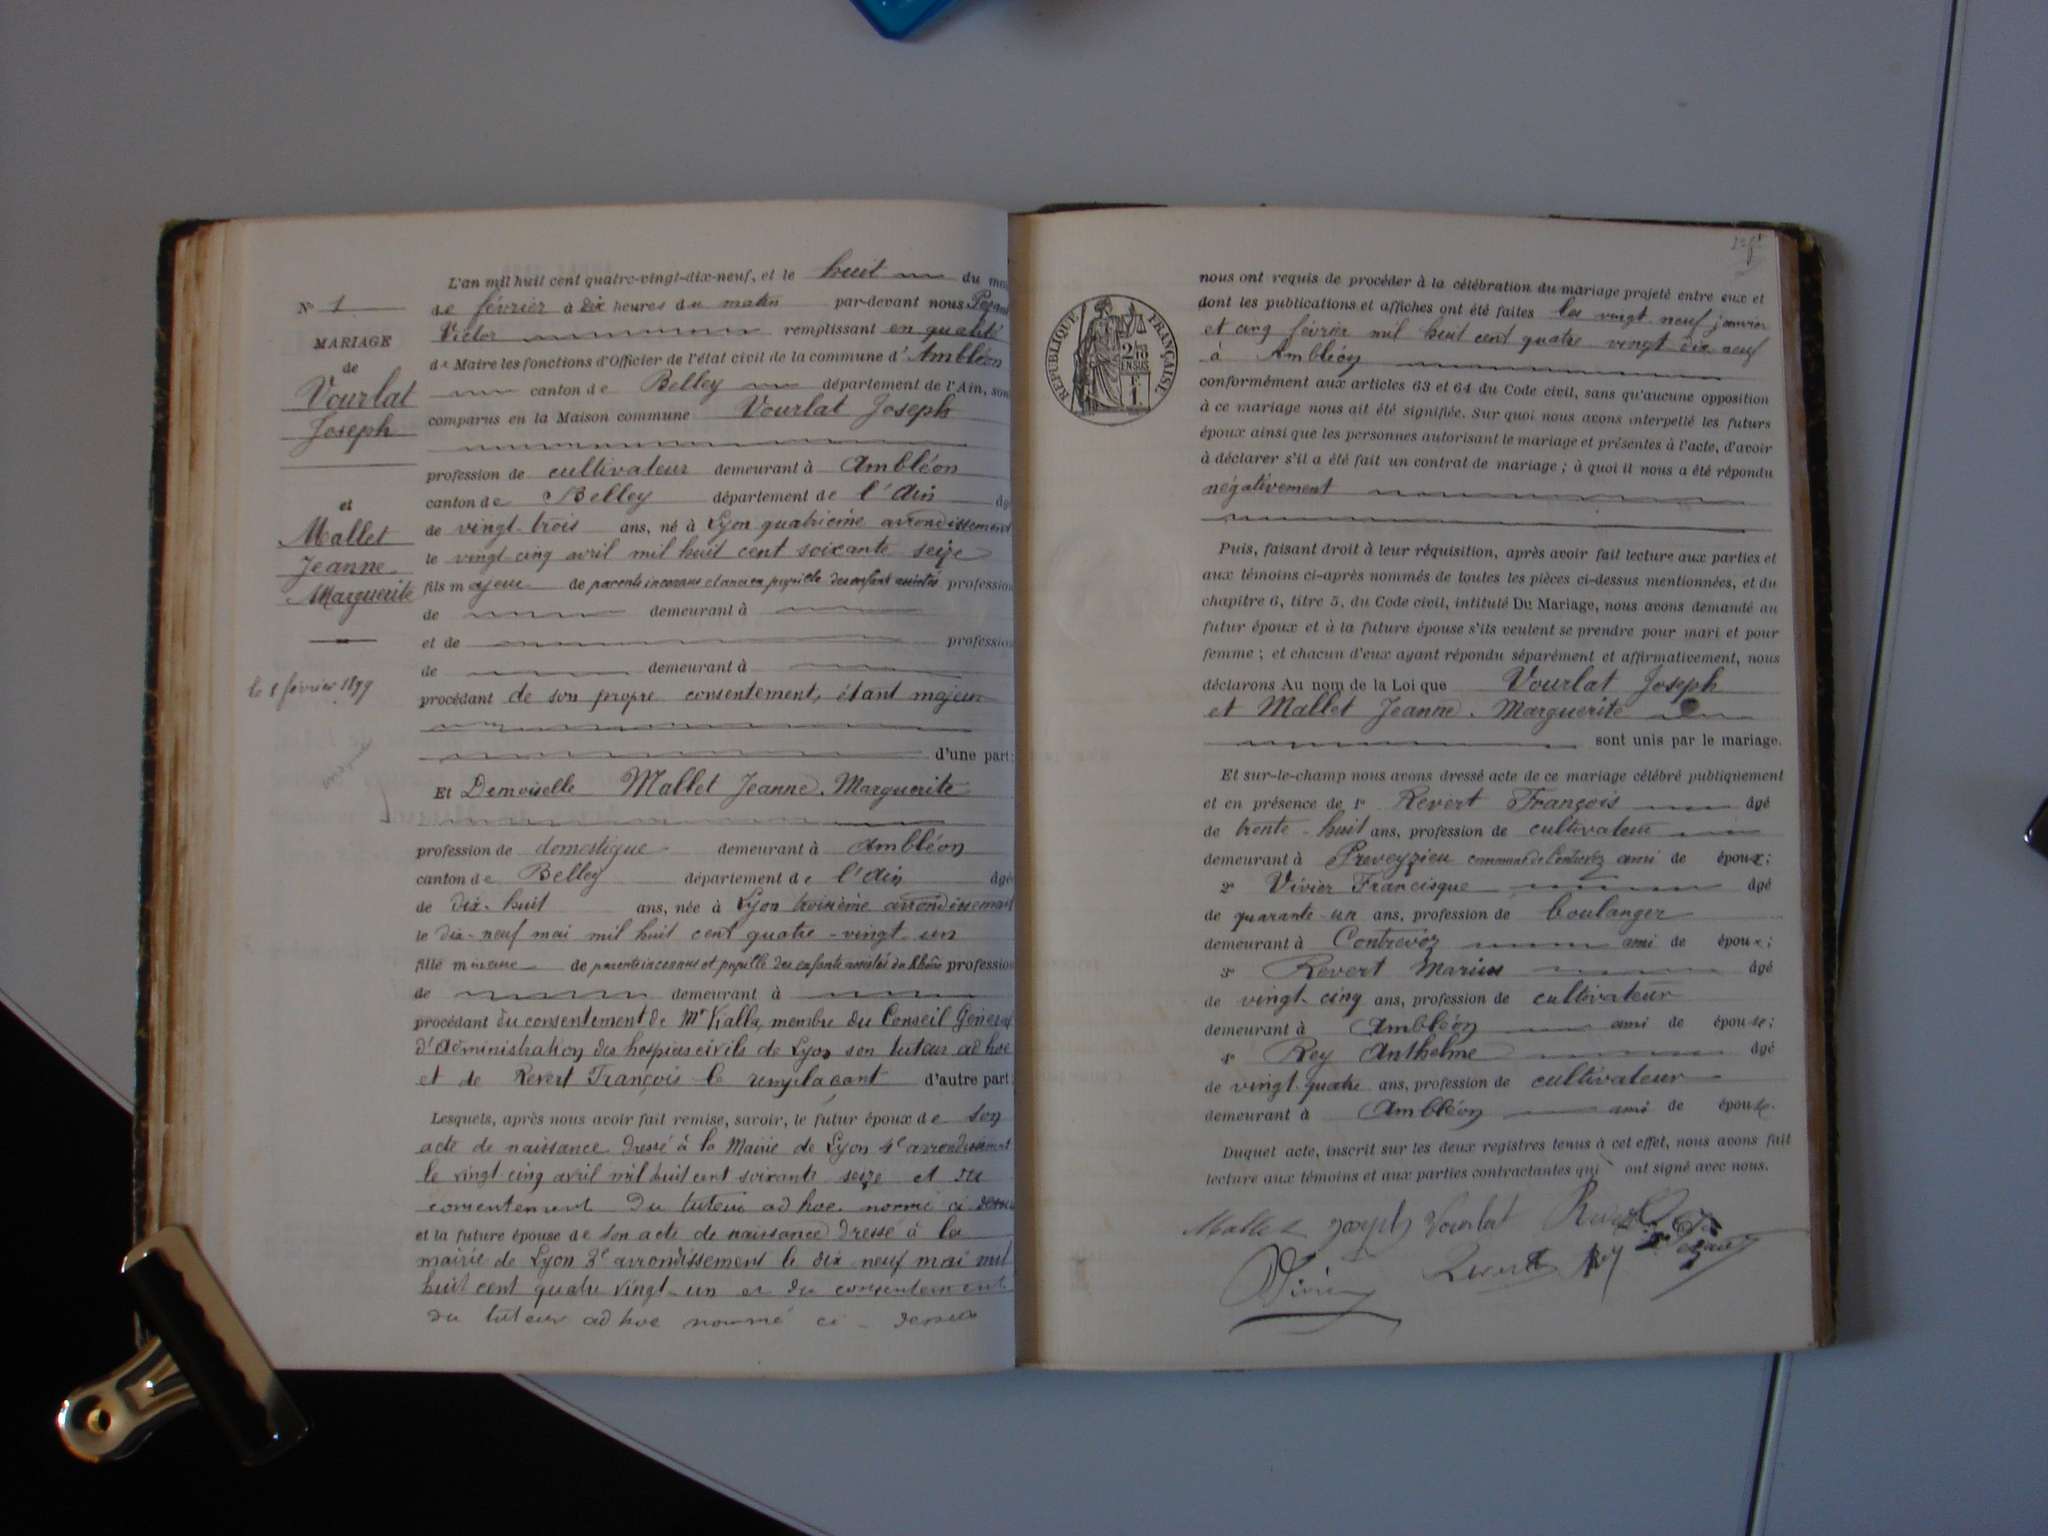 N° 1
MARIAGE
de
Vourlat
Joseph
et
Mallet
Jeanne
Marguerite
le 8 février 1899
L'an mil huit cent quatre-vingt-dix-neuf, et le huit du
de février à dix heures du matin par-devant nous
Victor remplissant en qualité
de Maire les fonctions d'Officier de l'état civil de la commune d'Ambléon
canton de Belley département de l'Ain, son
comparus en la Maison commune Vourlat Joseph
profession de cultivateur demeurant à Ambléon
canton de Belley département de l'Ain âg
de vingt-trois ans, né à Lyon quatrième arrondissement
le vingt cinq avril mil huit cent soixante seize
fils majeur de parents inconnus et ancien pupille des enfants assistés profession
de demeurant à
et de profession
de demeurant à
procédant de son propre consentement, étant majeur
d'une part;
Et Demoiselle Mallet Jeanne Marguerite
profession de domestique demeurant à Ambléon
canton de Belley département de l'Ain âgé
de dix-huit ans, née à Lyon troisième arrondissement
le dix-neuf mai mil huit cent quatre-vingt-un
fille mineure de parents inconnus et pupille des enfants assistés du Rhône profession
de demeurant à
procédant du consentement de Mr membre du Conseil Général
d'administration des hospices civils de Lyon son tuteur ad hoc
et de Revert François le remplaçant d'autre part;
Lesquels, après nous avoir fait remise, savoir, le futur époux de son
acte de naissance dressé à la Mairie de Lyon 4e arrondissement
le vingt cinq avril mil huit cent soixante seize et du
consentement du tuteur ad hoc nommé ci dessus
et la future épouse de son acte de naissance dressé à la
mairie de Lyon 3e arrondissement le dix neuf mai mil
huit cent quatre vingt-un et du consentement
du tuteur ad hoc nommé ci-dessus
RÉPUBLIQUE FRANÇAISE
2/10
EN SUS
1 F.
nous ont requis de procéder à la célébration du mariage projeté entre eux et
dont les publications et affiches ont été faites les vingt-neuf janvier
et cinq février mil huit cent quatre vingt dix neuf
à Ambléon
conformément aux articles 63 et 64 du Code civil, sans qu'aucune opposition
à ce mariage nous ait été signifiée. Sur quoi nous avons interpellé les futurs
époux ainsi que les personnes autorisant le mariage et présentes à l'acte, d'avoir
à déclarer s'il a été fait un contrat de mariage; à quoi il nous a été répondu
négativement
Puis, faisant droit à leur réquisition, après avoir fait lecture aux parties et
aux témoins ci-après nommés de toutes les pièces ci-dessus mentionnées, et du
chapitre 6, titre 5, du Code civil, intitulé Du Mariage, nous avons demandé au
futur époux et à la future épouse s'ils veulent se prendre pour mari et pour
femme; et chacun d'eux ayant répondu séparément et affirmativement, nous
déclarons Au nom de la Loi que Vourlat Joseph
et Mallet Jeanne Marguerite
sont unis par le mariage.
Et sur-le-champ nous avons dressé acte de ce mariage célébré publiquement
et en présence de 1° Revert François âgé
de trente-huit ans, profession de cultivateur
demeurant à Preveyzieu commune de Contrevoz ami de époux;
2° Vivier Francisque âgé
de quarante-un ans, profession de boulanger
demeurant à Contrevoz ami de époux;
3° Revert Marius âgé
de vingt-cinq ans, profession de cultivateur
demeurant à Ambléon ami de épouse;
4° Rey Anthelme âgé
de vingt quatre ans, profession de cultivateur
demeurant à Ambléon ami de épouse.
Duquel acte, inscrit sur les deux registres tenus à cet effet, nous avons fait
lecture aux témoins et aux parties contractantes qui ont signé avec nous.
Joseph Vourlat
Revert Rey